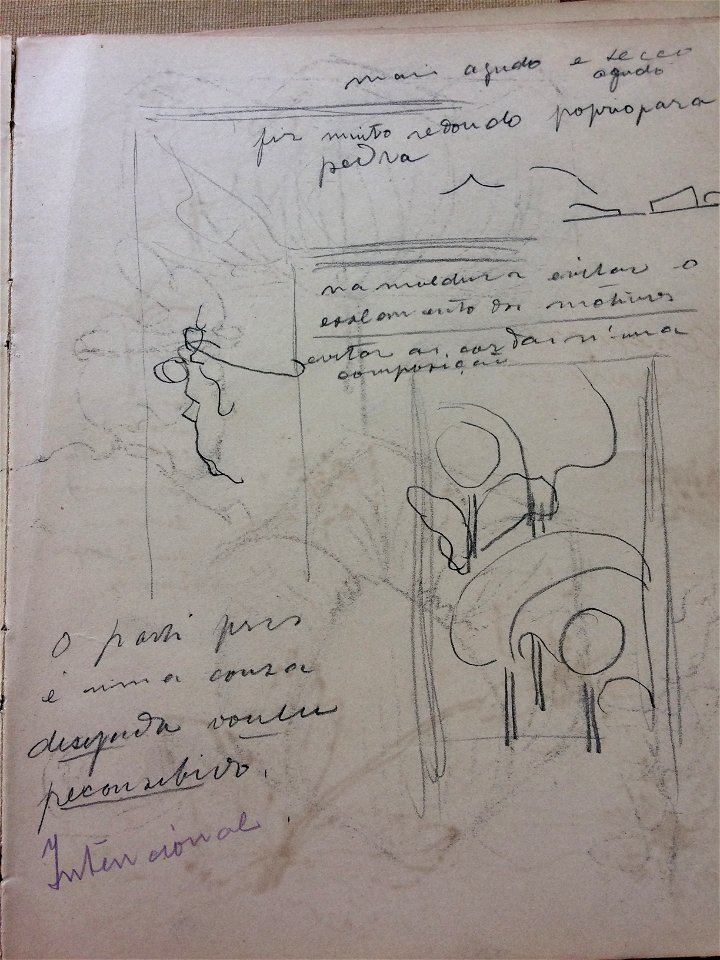 mais agudo e secco
agudo
fiz muito redondo proprio para
pedra
na moldura evitar o
isolamento dos motivos
evitar as cordas n'uma
composição
O parti pris
é uma cousa
desejada voulu
preconsebido.
Intencional.